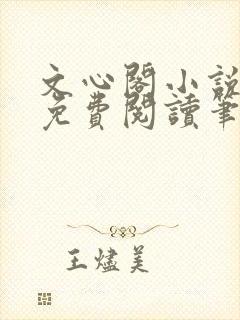 文心閣小說
免費閱讀筆
王燼美